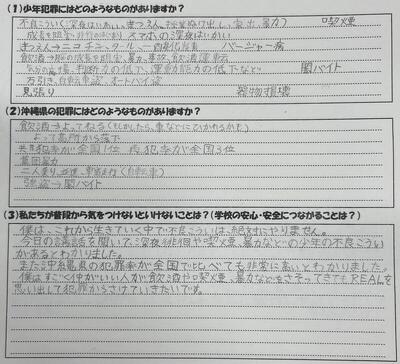 (1)少年犯罪にはどのようなものがありますか?
不良こうい(深夜はいかい、きつえん、授業ぬけ出し、家出、暴力 喫煙
成長を阻害、非行の始まり スマホの深夜はいかい
きつえん→ニコチン、タール、一酸化炭素 バージャー病
飲酒→脳の成長を阻害、暴力、事故、飲酒運転
気分の高揚、判断力の低下、運動能力の低下など 闇バイト
万引き、自転車盗、オートバイ盗
見張り 器物損壊
(2)沖縄県の犯罪にはどのようなものがありますか?
飲酒→よってねる(もしかしたら、車などにひかれるかも)
よって高所から落下
共犯率が全国1位 再犯率が全国3位
集団暴力
二人乗り、並進、事故走行(自転車)
強盗→闇バイト
(3)私たちが普段から気をつけないといけないことは?(学校の安心・安全につながることは?)
僕は、これから生きていく中で不良こういは、絶対にやりません。
今日の講話を聞いて深夜徘徊や喫煙、暴力などの少年の不良こうい
があるとわかりました。
また沖縄県の犯罪率が全国で比べても非常に高いとわかりました。
僕はすごく仲がいい人が飲酒や喫煙、暴力などをさそってきてもREALを
思い出して犯罪からさけていきたいです。